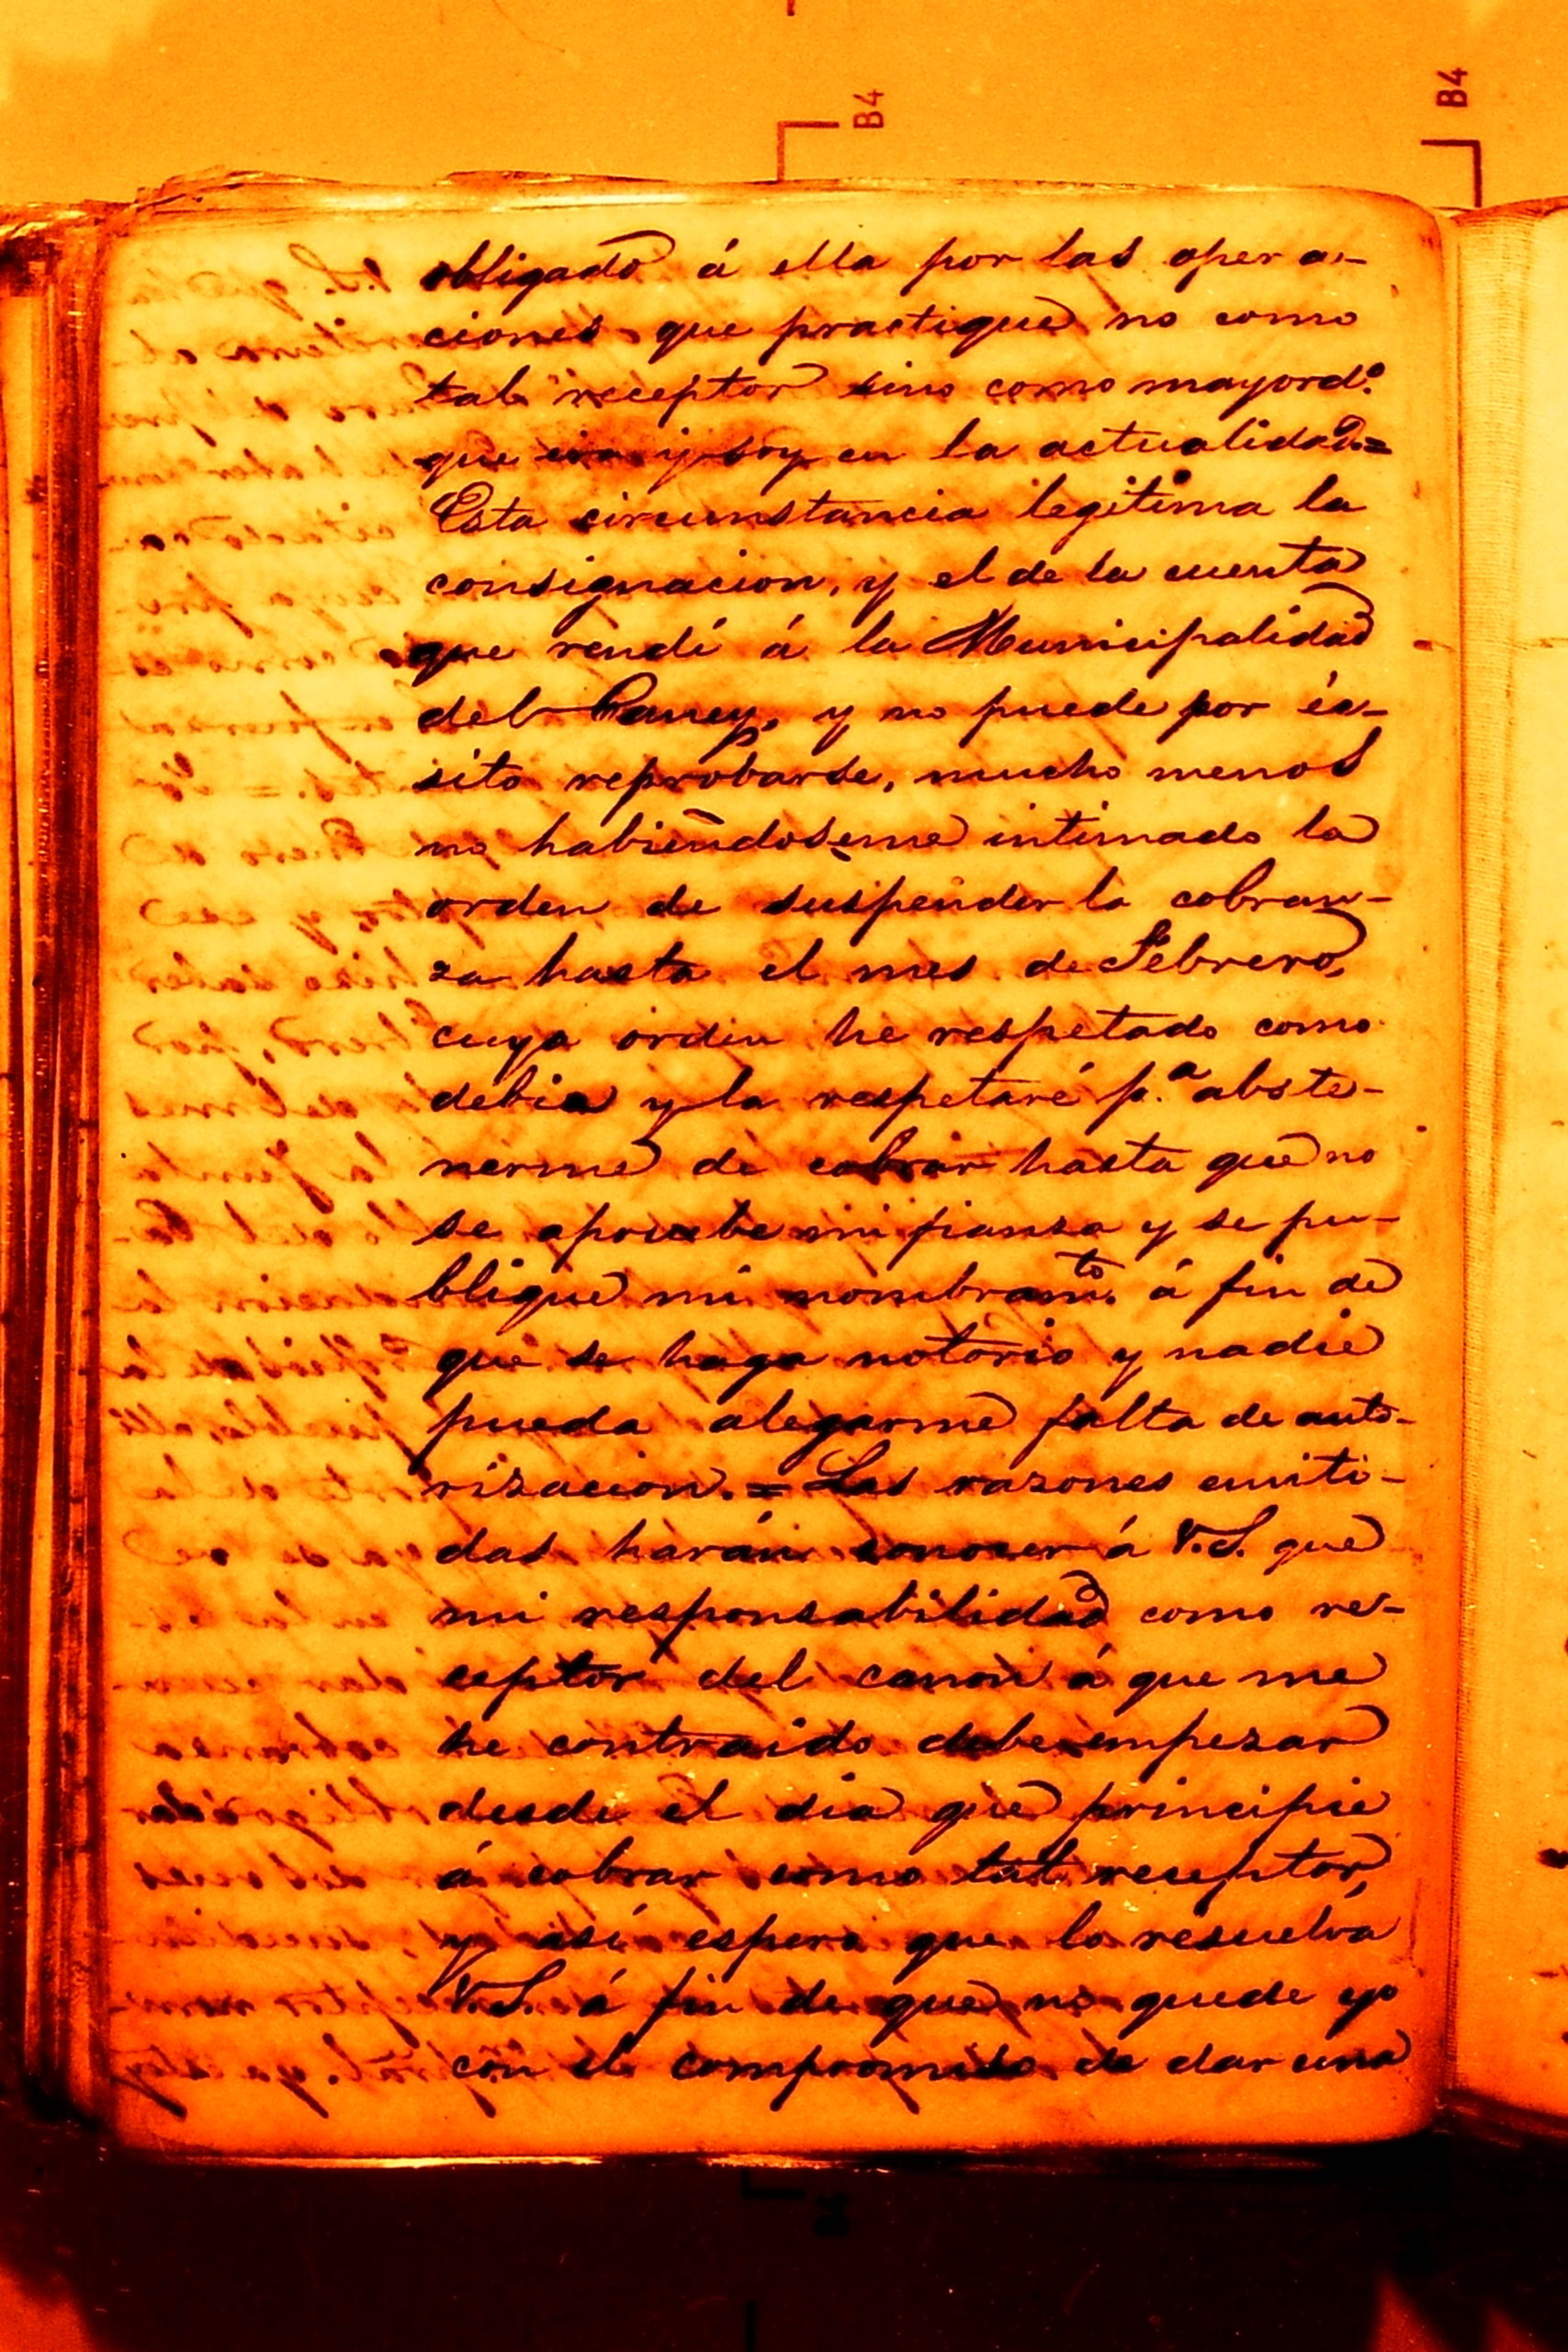 B4
B4
obligado á ella por las opera-
ciones que practique no como
tal receptor sino como mayord.º
que era y soy en la actualidad.=
Esta circunstancia legitima la
consignacion, y el de la cuenta
que rendí á la Municipalidad
del Caney, y no puede por éx-
sito reprobarse, mucho menos
no habiendoseme intimado la
orden de suspender la cobran-
za hasta el mes de Febrero,
cuya orden he respetado como
debia y la respetaré p.ª abste-
nerme de cobrar hasta que no
se apruebe mi fianza y se pu-
blique mi nombram.to á fin de
que se haga notorio y nadie
pueda alegarme falta de auto-
rizacion.=Las razones emiti-
das harán conocer á V.S. que
mi responsabilidad como re-
ceptor del canon á que me
he contraido debe empezar
desde el dia que principie
á cobrar como tal receptor,
y así espero que lo resuelva
V.S. á fin de que no quede yo
con el compromiso de dar una